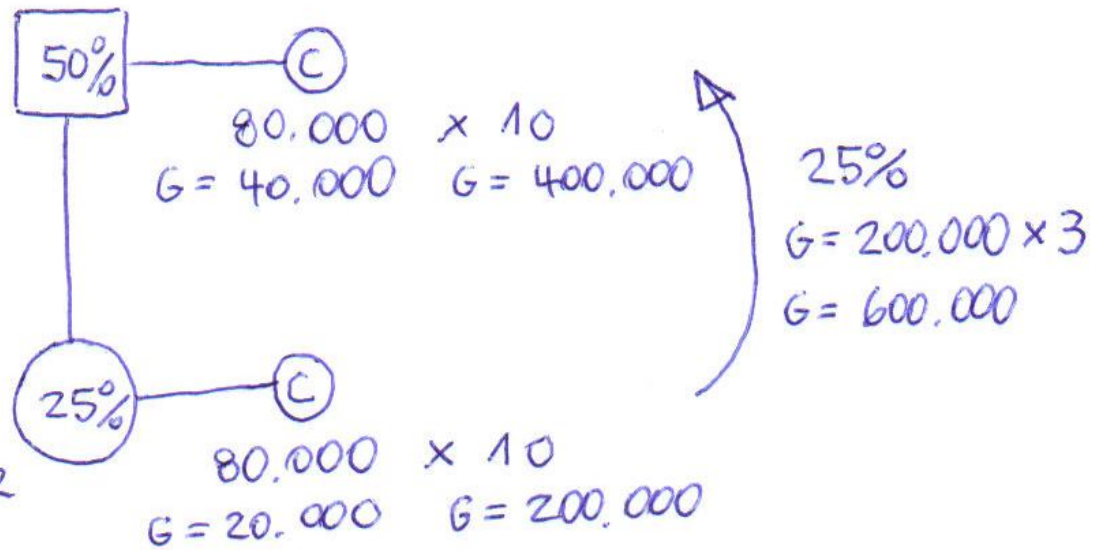 50%
C
80.000 × 10
G = 40.000 G = 400.000
25%
G = 200.000 × 3
G = 600.000
25%
C
80.000 × 10
G = 20.000 G = 200.000